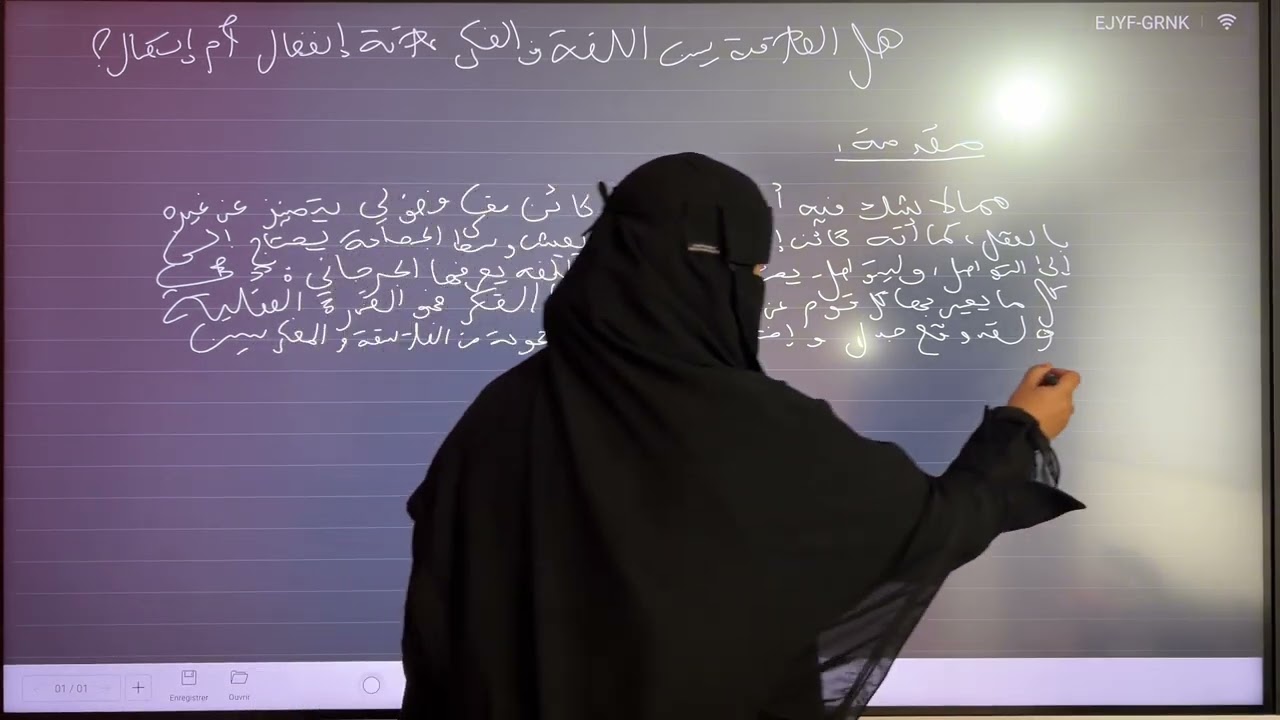 EJYF-GRNK
هل العلاقة بين اللغة والفكر علاقة إنفصال أم إتصال؟
مقدمة:
مما لا يشك فيه أ كائن مفكر وفضولي يتميز عن غيره
بالعقل، كما أنه كائن إ يعيش وسط الجماعة يحتاج
إلى التواصل، وليتواصل اللغة يعرفها الجرجاني:
كل ما يعبر بها كل قوم عن الفكر فهو القدرة العقلية
ولقد وقع جدل و من الفلاسفة والمفكرين
01 / 01
Enregistrer
Ouvrir